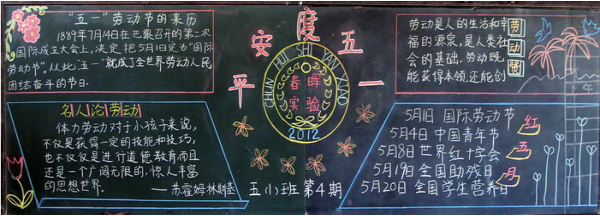 "五一"劳动节的来历
1889年7月4日在巴黎召开的第二次
国际成立大会上，决定把5月1日定为"国际
劳动节"，从此"五一"就成了全世界劳动人民
团结奋斗的节日。
名人论劳动
体力劳动对于小孩子来说，
不仅是获得一定的技能和技巧，
也不仅仅是进行道德教育，而且
还是一个广阔无限的，惊人丰富
的思想世界。
——苏霍姆林斯基
平安度五一
CHUN HUI SHI YAN XIAO
春晖
实验
2012
五(1)班第4期
劳动是人的生活和幸
福的源泉，是人类社
会的基础。劳动既
能获得本领还能创
劳
动
情
5月1日 国际劳动节
5月4日 中国青年节
5月8日 世界红十字会
5月19日 全国助残日
5月20日 全国学生营养日
红
五
月